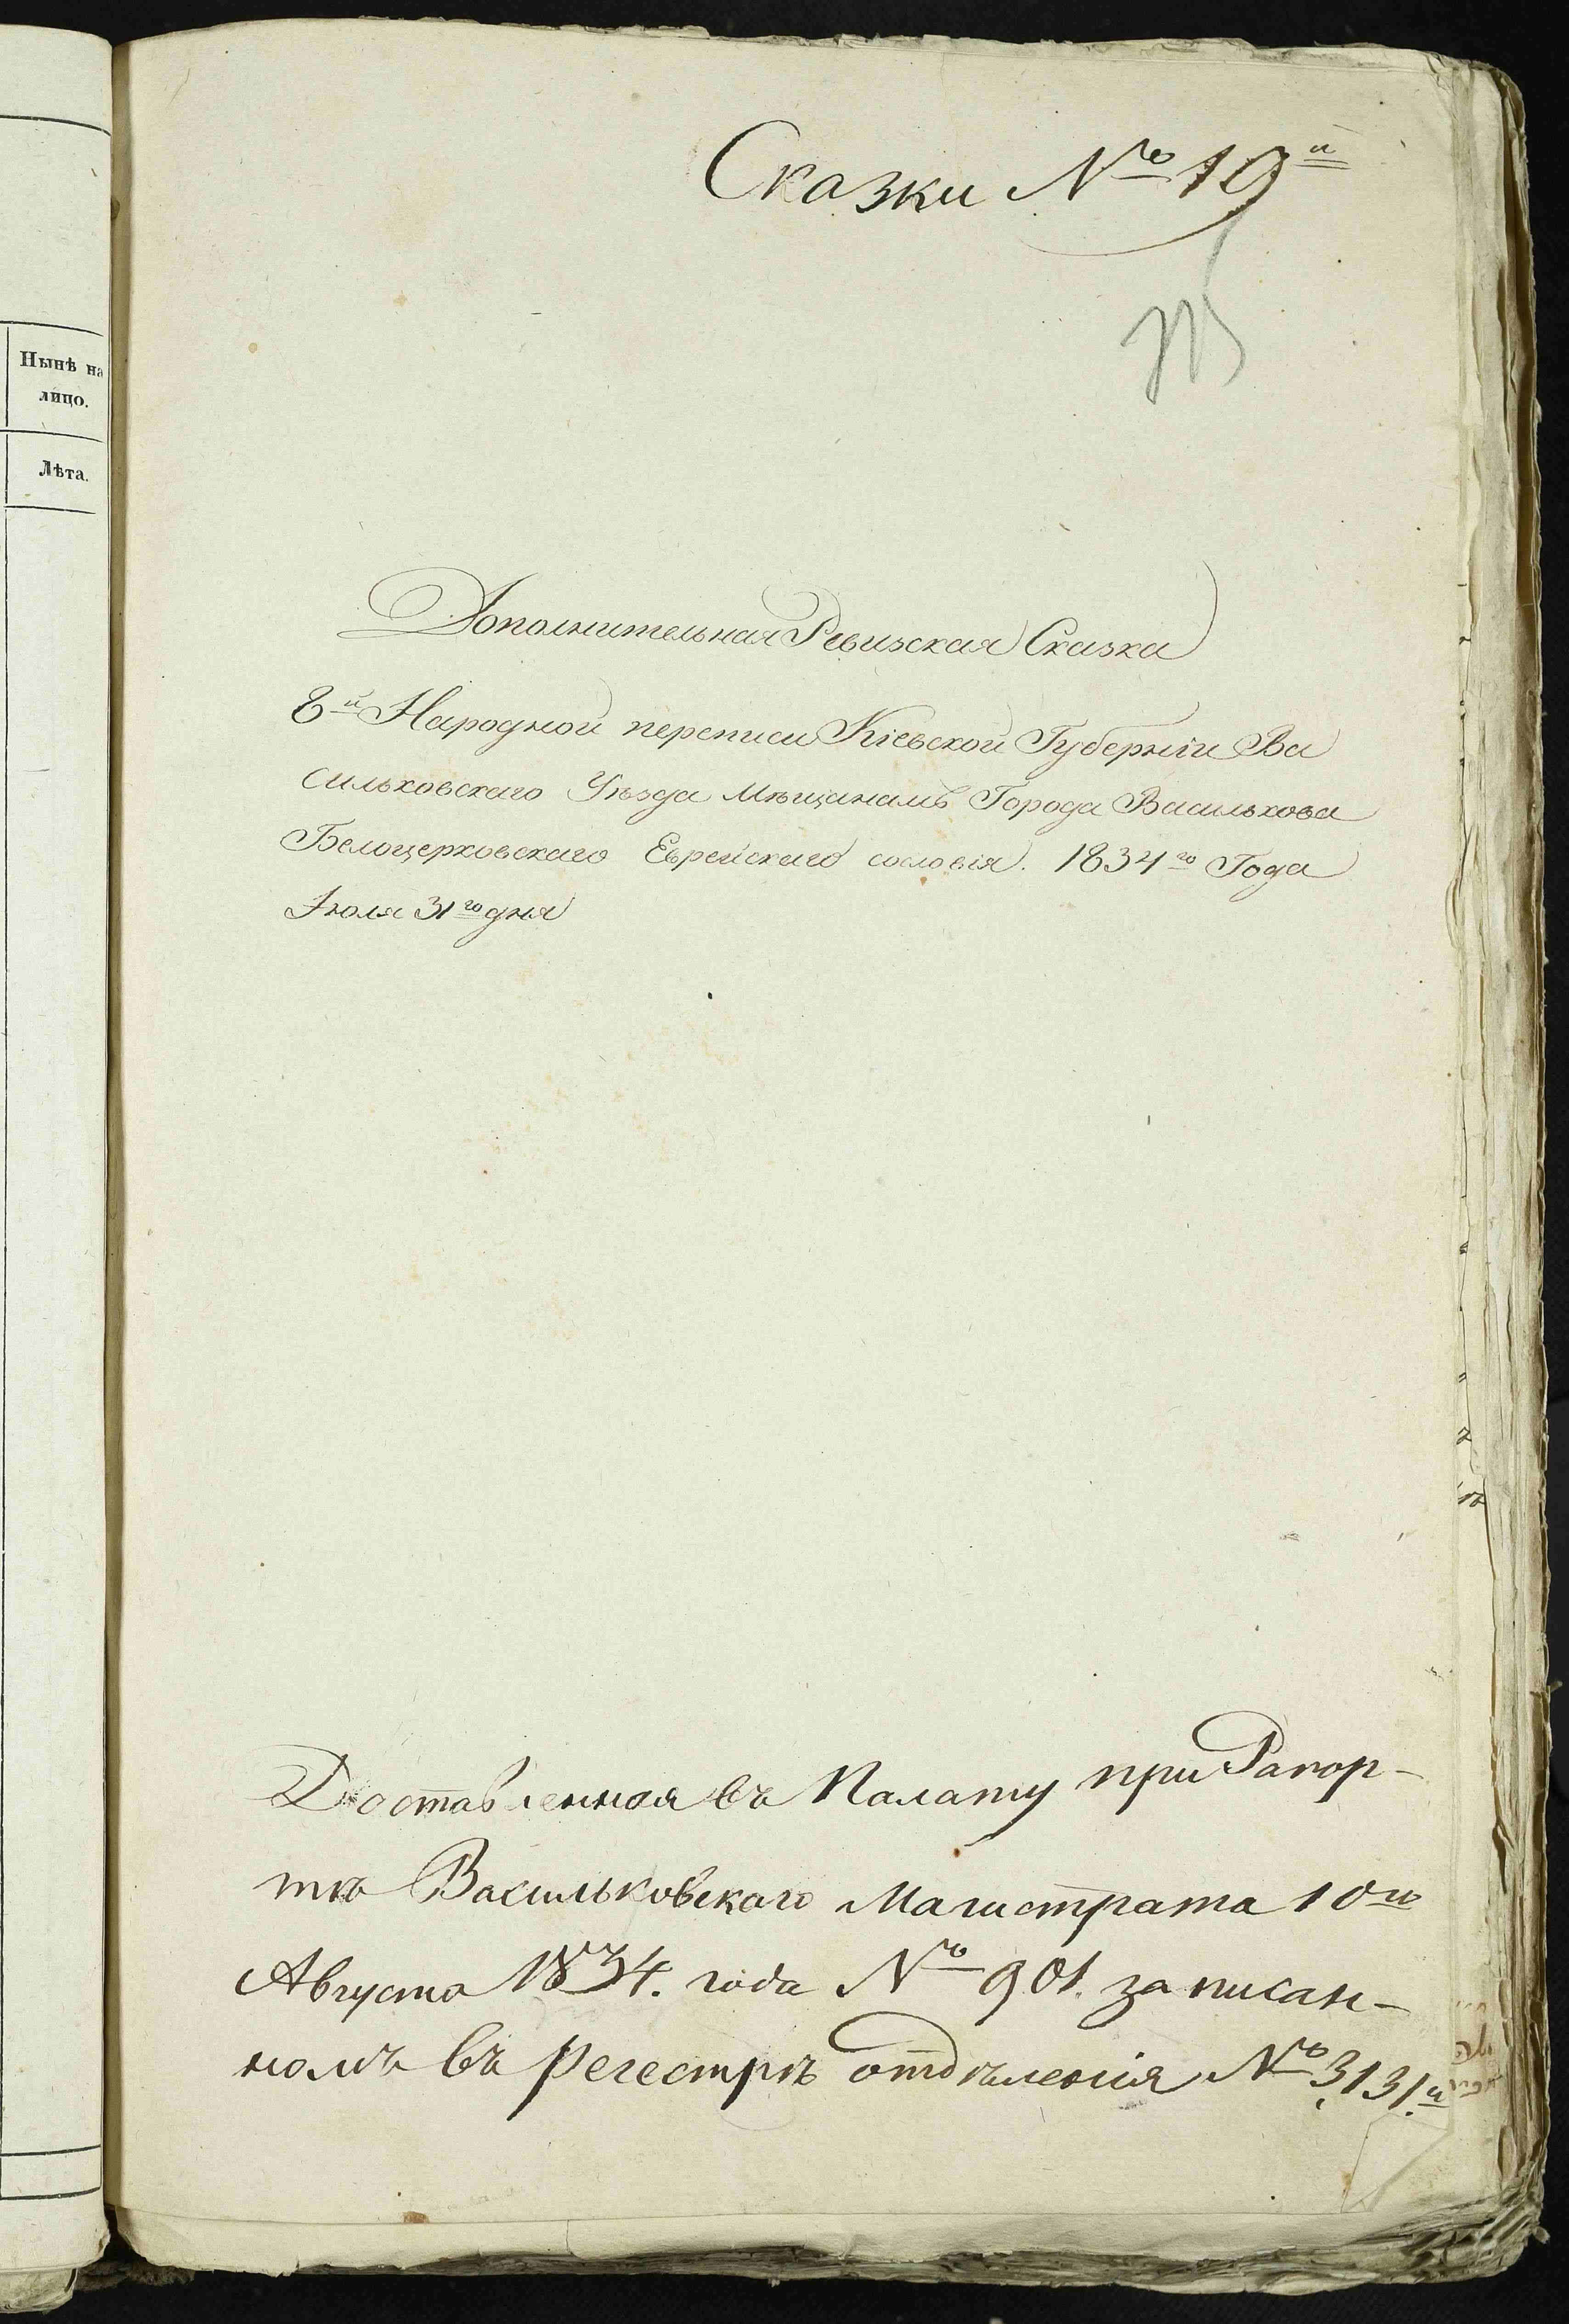 Ныне на
лицо.
Лѣта.
Сказки №о 19й
Дополнительная Ревизская Сказка
8й Народной переписи Кіевской Губерніи Ва
сильковскаго Уѣзда Мѣщанамъ Города Василькова
Белоцерковскаго Еврейскаго сословія. 1834го Года
Іюля 31го дня
Доставленная въ Палату при Рапор-
тѣ Васильковскаго Магистрата 10го
Августа 1834. года №о 901. записан-
номъ въ регестрѣ отдѣленія №о 3131.й